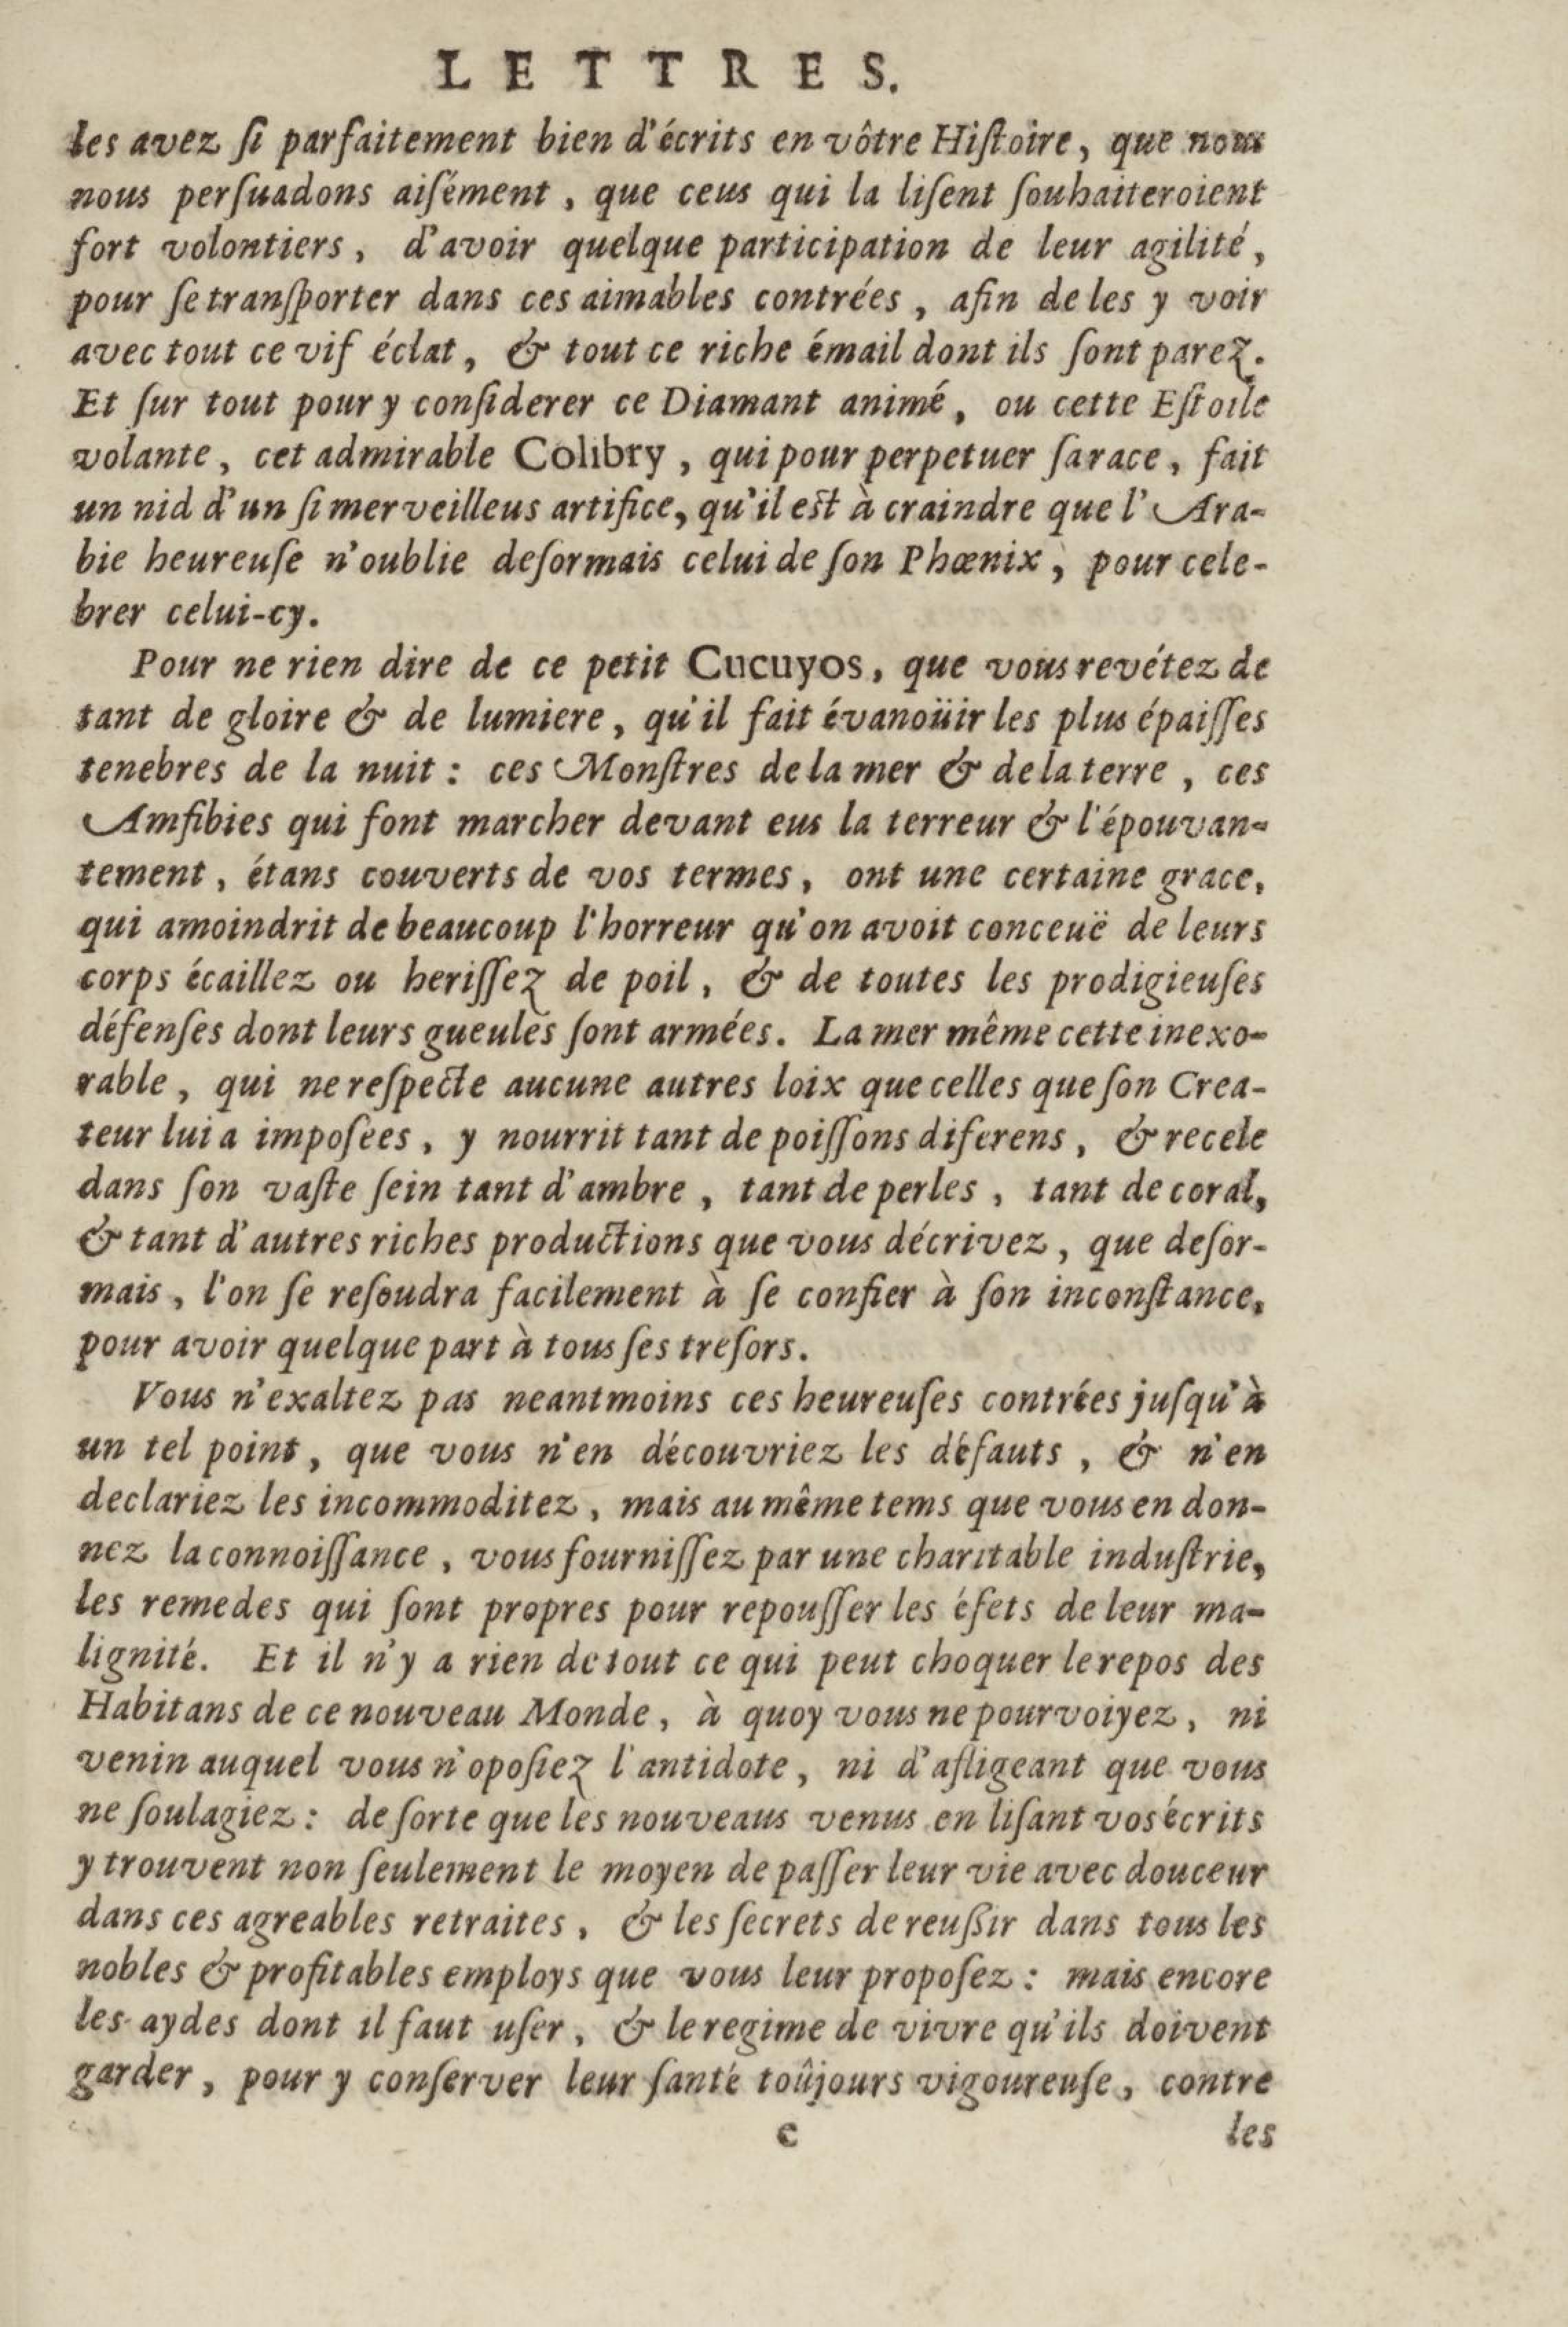 LETTRES.
les avez ſi parfaitement bien d'écrits en vôtre Hiſtoire, que nous
nous perſuadons aiſément, que ceus qui la liſent ſouhaiteroient
fort volontiers, d'avoir quelque participation de leur agilité,
pour ſe tranſporter dans ces aimables contrées, afin de les y voir
avec tout ce vif éclat, & tout ce riche émail dont ils ſont parez.
Et ſur tout pour y conſiderer ce Diamant animé, ou cette Eſtoile
volante, cet admirable Colibry, qui pour perpetuer ſa race, fait
un nid d'un ſi merveilleus artifice, qu'il eſt à craindre que l'Ara-
bie heureuſe n'oublie deſormais celui de ſon Phœnix, pour cele-
brer celui-cy.
Pour ne rien dire de ce petit Cucuyos, que vous revétez de
tant de gloire & de lumiere, qu'il fait évanoüir les plus épaiſſes
tenebres de la nuit: ces Monſtres de la mer & de la terre, ces
Amfibies qui font marcher devant eus la terreur & l'épouvan-
tement, étans couverts de vos termes, ont une certaine grace,
qui amoindrit de beaucoup l'horreur qu'on avoit conceuë de leurs
corps écaillez ou heriſſez de poil, & de toutes les prodigieuſes
défenſes dont leurs gueules ſont armées. La mer même cette inexo-
rable, qui ne reſpecte aucune autres loix que celles que ſon Crea-
teur lui a impoſées, y nourrit tant de poiſſons diferens, & recele
dans ſon vaſte ſein tant d'ambre, tant de perles, tant de coral,
& tant d'autres riches productions que vous décrivez, que deſor-
mais, l'on ſe reſoudra facilement à ſe confier à ſon inconſtance,
pour avoir quelque part à tous ſes treſors.
Vous n'exaltez pas neantmoins ces heureuſes contrées juſqu'à
un tel point, que vous n'en découvriez les défauts, & n'en
declariez les incommoditez, mais au même tems que vous en don-
nez la connoiſſance, vous fourniſſez par une charitable induſtrie,
les remedes qui ſont propres pour repouſſer les éfets de leur ma-
lignité. Et il n'y a rien de tout ce qui peut choquer le repos des
Habitans de ce nouveau Monde, à quoy vous ne pourvoiyez, ni
venin auquel vous n'opoſiez l'antidote, ni d'afligeant que vous
ne ſoulagiez: de ſorte que les nouveaus venus en liſant vos écrits
y trouvent non ſeulement le moyen de paſſer leur vie avec douceur
dans ces agreables retraites, & les ſecrets de reuſſir dans tous les
nobles & profitables employs que vous leur propoſez: mais encore
les aydes dont il faut uſer, & le regime de vivre qu'ils doivent
garder, pour y conſerver leur ſanté toûjours vigoureuſe, contre
c les